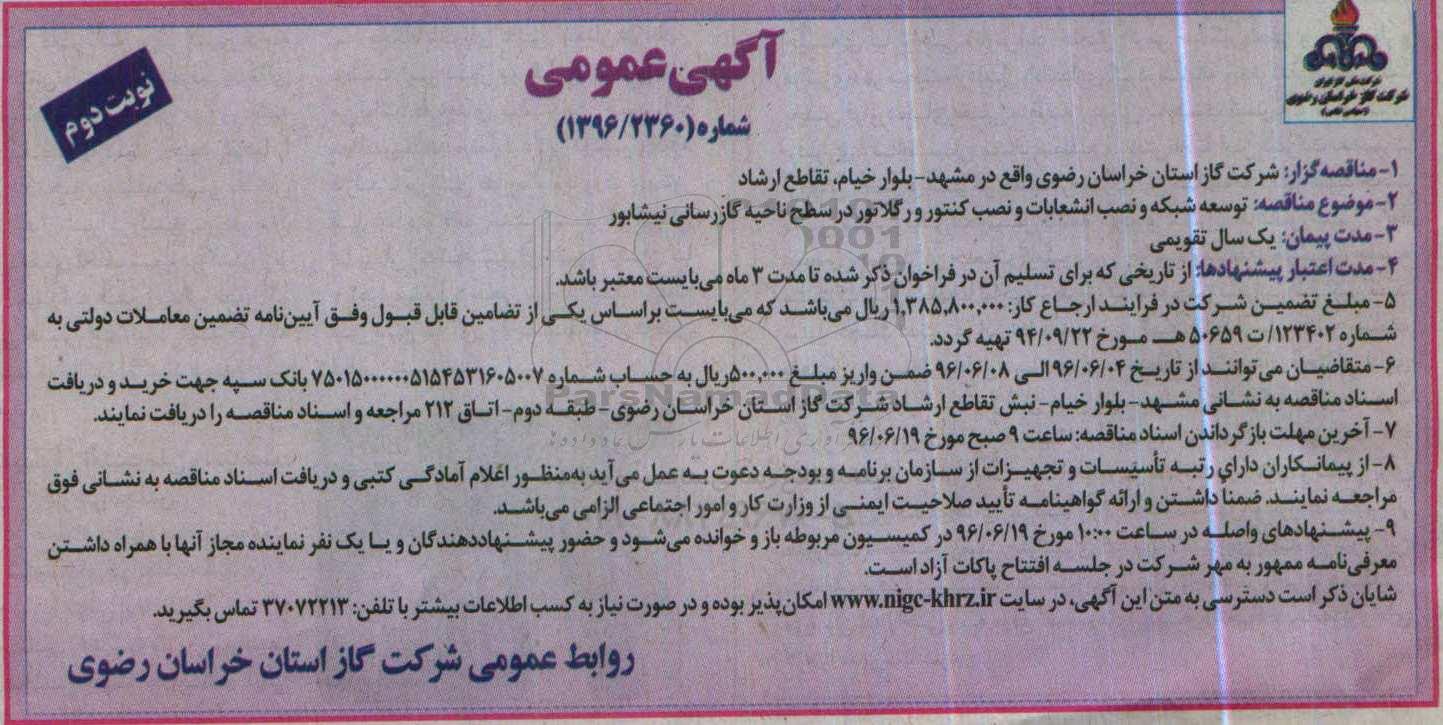 شرکت ملی گاز ایران
شرکت گاز خراسان رضوی
(سهامی خاص)
آگهی عمومی
نوبت دوم
شماره (۱۳۹۶/۲۳۶۰)
۱- مناقصه‌گزار: شرکت گاز استان خراسان رضوی واقع در مشهد- بلوار خیام، تقاطع ارشاد
۲- موضوع مناقصه: توسعه شبکه و نصب انشعابات و نصب کنتور و رگلاتور در سطح ناحیه گازرسانی نیشابور
۳- مدت پیمان: یک سال تقویمی
۴- مدت اعتبار پیشنهادها: از تاریخی که برای تسلیم آن در فراخوان ذکر شده تا مدت ۳ ماه می‌بایست معتبر باشد.
۵- مبلغ تضمین شرکت در فرایند ارجاع کار: ۱,۳۸۵,۸۰۰,۰۰۰ ریال می‌باشد که می‌بایست براساس یکی از تضامین قابل قبول وفق آیین‌نامه تضمین معاملات دولتی به
شماره ۱۲۳۴۰۲/ت ۵۰۶۵۹ هـ مورخ ۹۴/۰۹/۲۲ تهیه گردد.
۶- متقاضیان می‌توانند از تاریخ ۹۶/۰۶/۰۴ الی ۹۶/۰۶/۰۸ ضمن واریز مبلغ ۵۰۰,۰۰۰ ریال به حساب شماره ۷۵۰۱۵۰۰۰۰۰۰۵۱۵۴۵۳۱۶۰۵۰۰۷ بانک سپه جهت خرید و دریافت
اسناد مناقصه به نشانی مشهد- بلوار خیام- نبش تقاطع ارشاد شرکت گاز استان خراسان رضوی- طبقه دوم- اتاق ۲۱۲ مراجعه و اسناد مناقصه را دریافت نمایند.
۷- آخرین مهلت بازگرداندن اسناد مناقصه: ساعت ۹ صبح مورخ ۹۶/۰۶/۱۹
۸- از پیمانکاران دارای رتبه تأسیسات و تجهیزات از سازمان برنامه و بودجه دعوت به عمل می‌آید به‌منظور اعلام آمادگی کتبی و دریافت اسناد مناقصه به نشانی فوق
مراجعه نمایند. ضمناً داشتن و ارائه گواهینامه تأیید صلاحیت ایمنی از وزارت کار و امور اجتماعی الزامی می‌باشد.
۹- پیشنهادهای واصله در ساعت ۱۰:۰۰ مورخ ۹۶/۰۶/۱۹ در کمیسیون مربوطه باز و خوانده می‌شود و حضور پیشنهاددهندگان و یا یک نفر نماینده مجاز آنها با همراه داشتن
معرفی‌نامه ممهور به مهر شرکت در جلسه افتتاح پاکات آزاد است.
شایان ذکر است دسترسی به متن این آگهی، در سایت www.nigc-khrz.ir امکان‌پذیر بوده و در صورت نیاز به کسب اطلاعات بیشتر با تلفن: ۳۷۰۷۲۲۱۳ تماس بگیرید.
روابط عمومی شرکت گاز استان خراسان رضوی
ParsNamadData